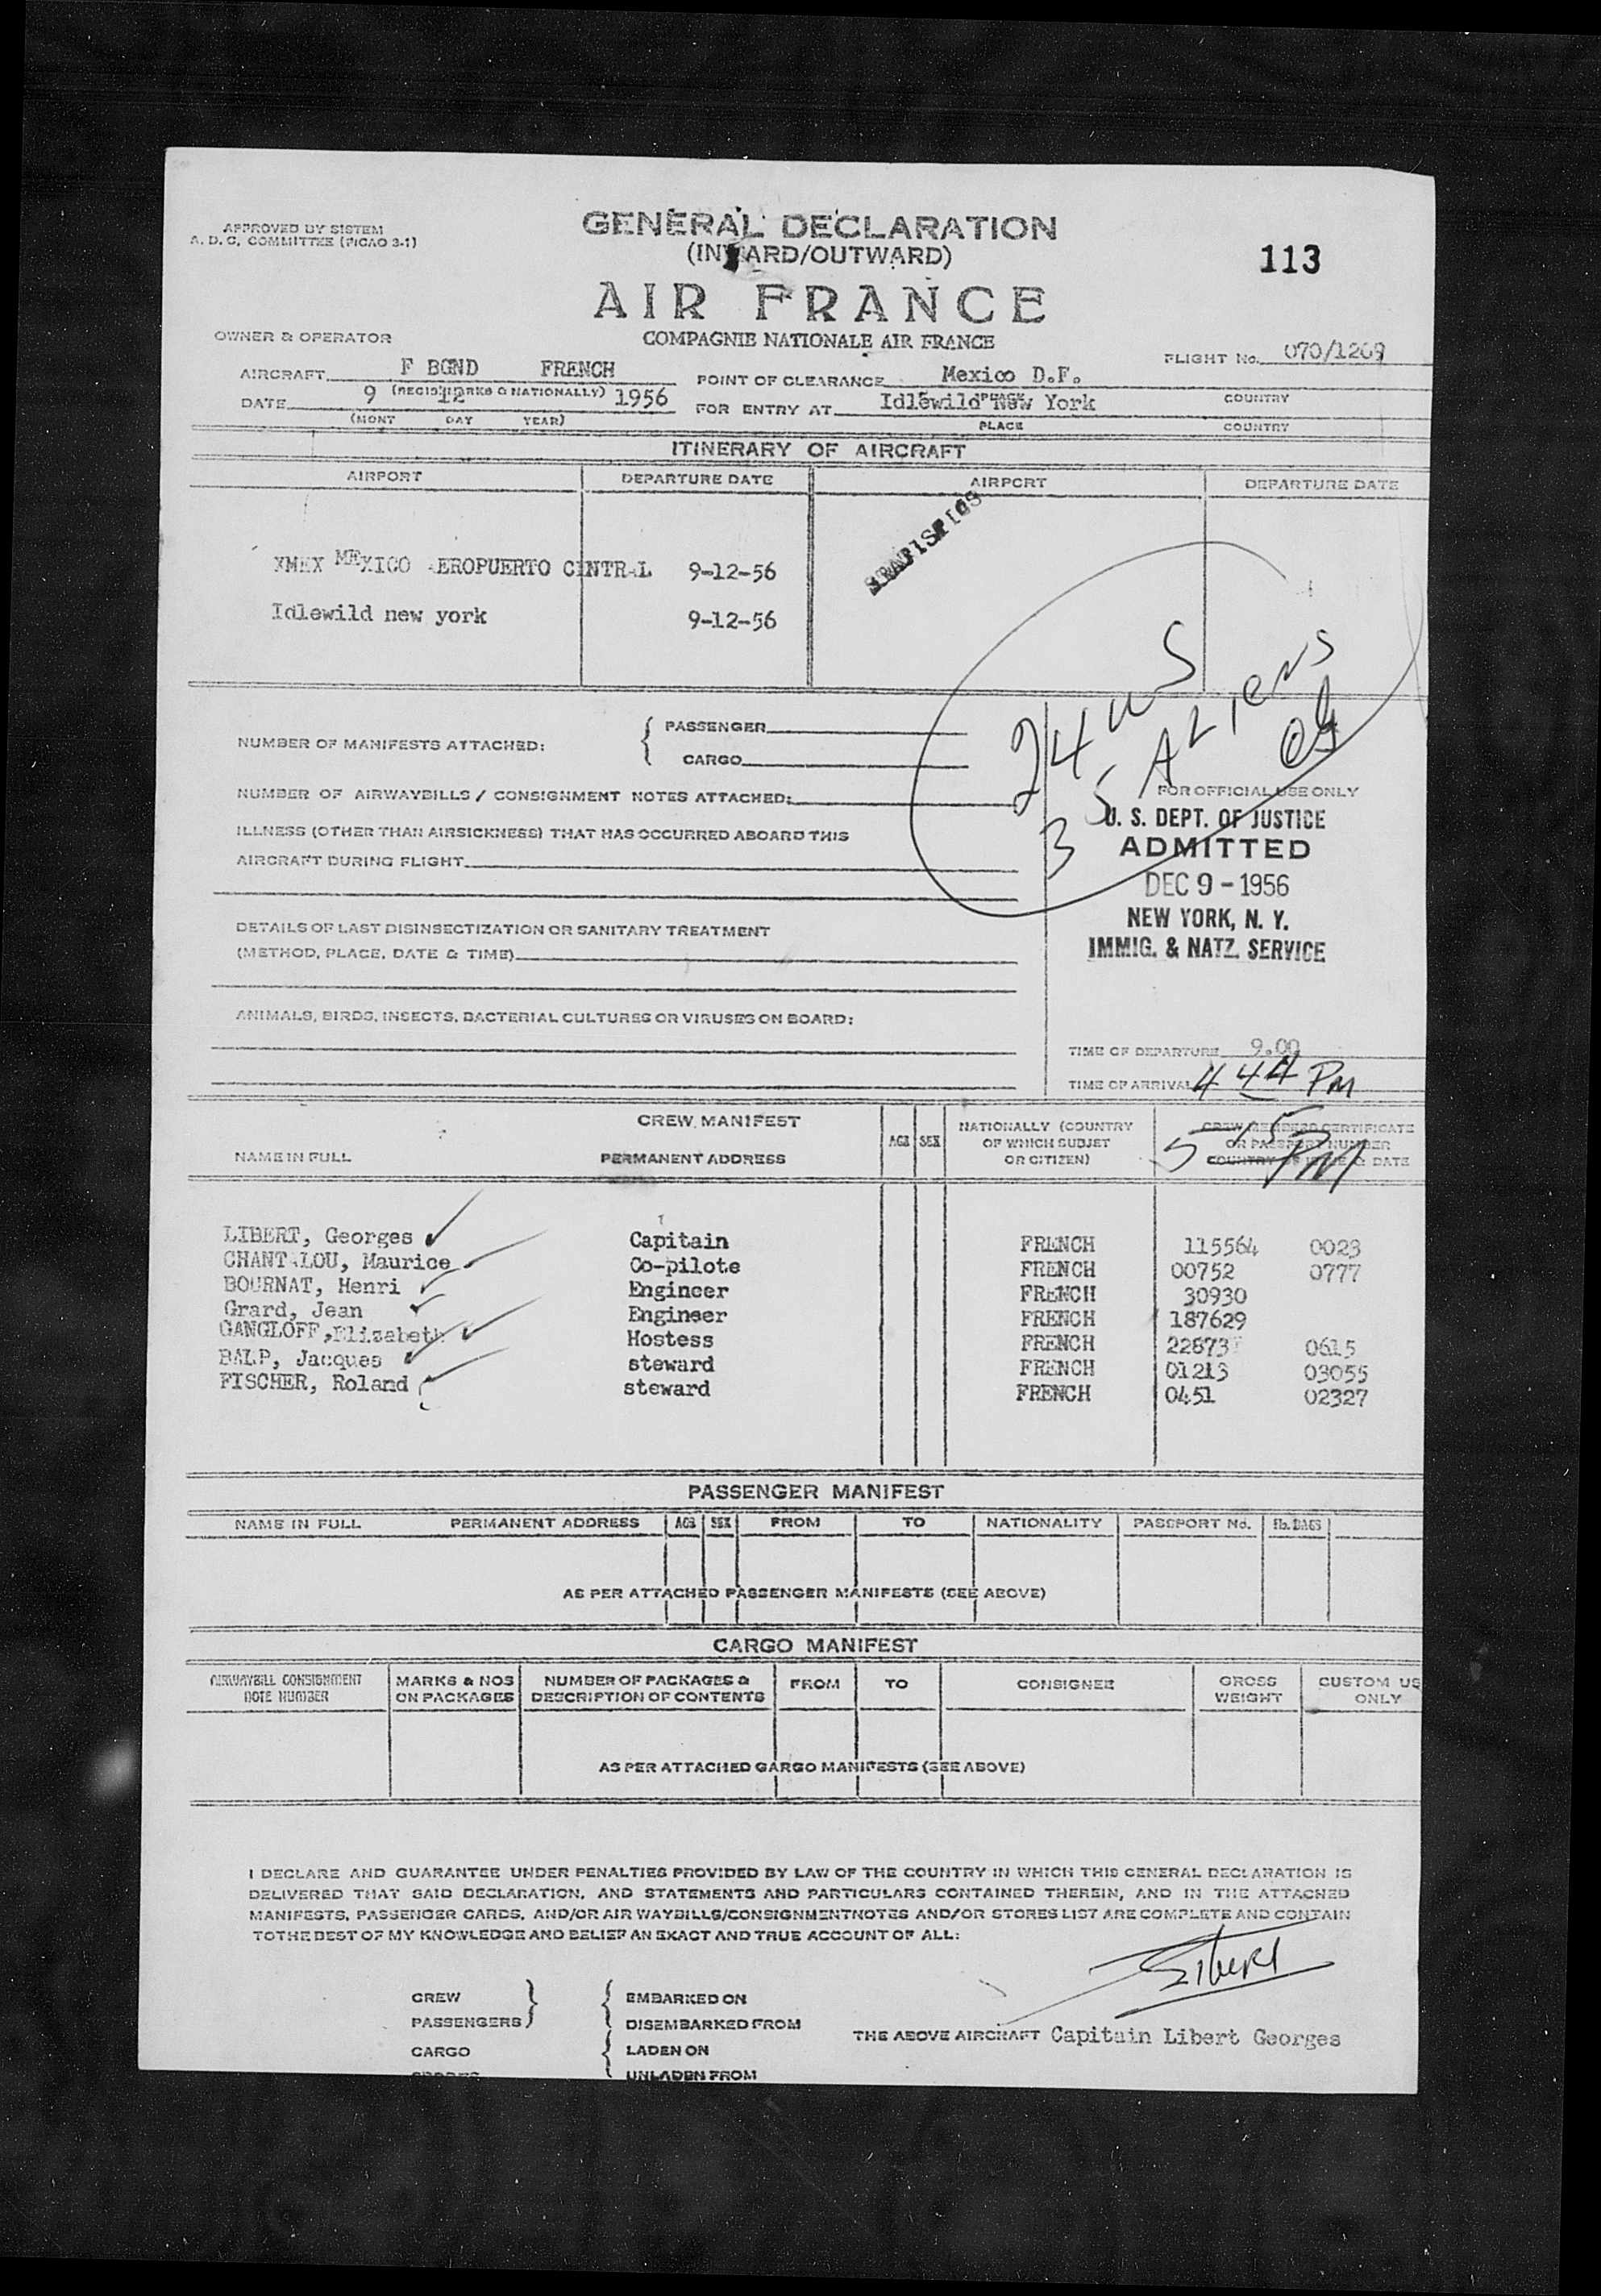 APPROVED BY SISTEM
A. D. C, COMMITTEE (PICAO 3-1)
GENERAL DECLARATION
(INWARD/OUTWARD)
113
AIR FRANCE
COMPAGNIE NATIONALE AIR FRANCE
OWNER & OPERATOR
FLIGHT No. 070/1269
AIRCRAFT F BGND FRENCH
(REGIS MARKS & NATIONALLY)
POINT OF CLEARANCE Mexico D.F.
PLACE COUNTRY
DATE 9 12 1956
(MONT DAY YEAR)
FOR ENTRY AT Idlewild New York
PLACE COUNTRY
ITINERARY OF AIRCRAFT
AIRPORT DEPARTURE DATE AIRPORT DEPARTURE DATE
XMEX MEXICO AEROPUERTO CENTRAL 9-12-56
Idlewild new york 9-12-56
24 US
35 ALIENS
NUMBER OF MANIFESTS ATTACHED:
PASSENGER
CARGO
NUMBER OF AIRWAYBILLS / CONSIGNMENT NOTES ATTACHED:
ILLNESS (OTHER THAN AIRSICKNESS) THAT HAS OCCURRED ABOARD THIS
AIRCRAFT DURING FLIGHT
DETAILS OF LAST DISINSECTIZATION OR SANITARY TREATMENT
(METHOD, PLACE, DATE & TIME)
ANIMALS, BIRDS, INSECTS, BACTERIAL CULTURES OR VIRUSES ON BOARD:
FOR OFFICIAL USE ONLY
U. S. DEPT. OF JUSTICE
ADMITTED
DEC 9 - 1956
NEW YORK, N. Y.
IMMIG. & NATZ. SERVICE
TIME OF DEPARTURE 9.00
TIME OF ARRIVAL 4 44 PM
515 PM
CREW MANIFEST
NAME IN FULL PERMANENT ADDRESS AGE SEX
NATIONALLY (COUNTRY
OF WHICH SUBJET
OR CITIZEN)
CREW MEMBERS CERTIFICATE
OR PASSPORT NUMBER
COUNTRY OF ISSUE & DATE
LIBERT, Georges Capitain FRENCH 115564 0023
CHANTALOU, Maurice Co-pilote FRENCH 00752 0777
BOURNAT, Henri Engineer FRENCH 30930
Grard, Jean Engineer FRENCH 187629
GANGLOFF, Elizabeth Hostess FRENCH 22873 0615
BALP, Jacques steward FRENCH 01213 03055
FISCHER, Roland steward FRENCH 0451 02327
PASSENGER MANIFEST
NAME IN FULL PERMANENT ADDRESS AGE SEX FROM TO NATIONALITY PASSPORT No. No. BAGS
AS PER ATTACHED PASSENGER MANIFESTS (SEE ABOVE)
CARGO MANIFEST
AIRWAYBILL CONSIGNMENT
NOTE NUMBER
MARKS & NOS
ON PACKAGES
NUMBER OF PACKAGES &
DESCRIPTION OF CONTENTS
FROM TO CONSIGNEE
GROSS
WEIGHT
CUSTOM US
ONLY
AS PER ATTACHED CARGO MANIFESTS (SEE ABOVE)
I DECLARE AND GUARANTEE UNDER PENALTIES PROVIDED BY LAW OF THE COUNTRY IN WHICH THIS GENERAL DECLARATION IS
DELIVERED THAT SAID DECLARATION, AND STATEMENTS AND PARTICULARS CONTAINED THEREIN, AND IN THE ATTACHED
MANIFESTS, PASSENGER CARDS, AND/OR AIR WAYBILLS/CONSIGNMENTNOTES AND/OR STORES LIST ARE COMPLETE AND CONTAIN
TOTHE BEST OF MY KNOWLEDGE AND BELIEF AN EXACT AND TRUE ACCOUNT OF ALL:
Libert
CREW
PASSENGERS
CARGO
EMBARKED ON
DISEMBARKED FROM
LADEN ON
UNLADEN FROM
THE ABOVE AIRCRAFT Capitain Libert Georges